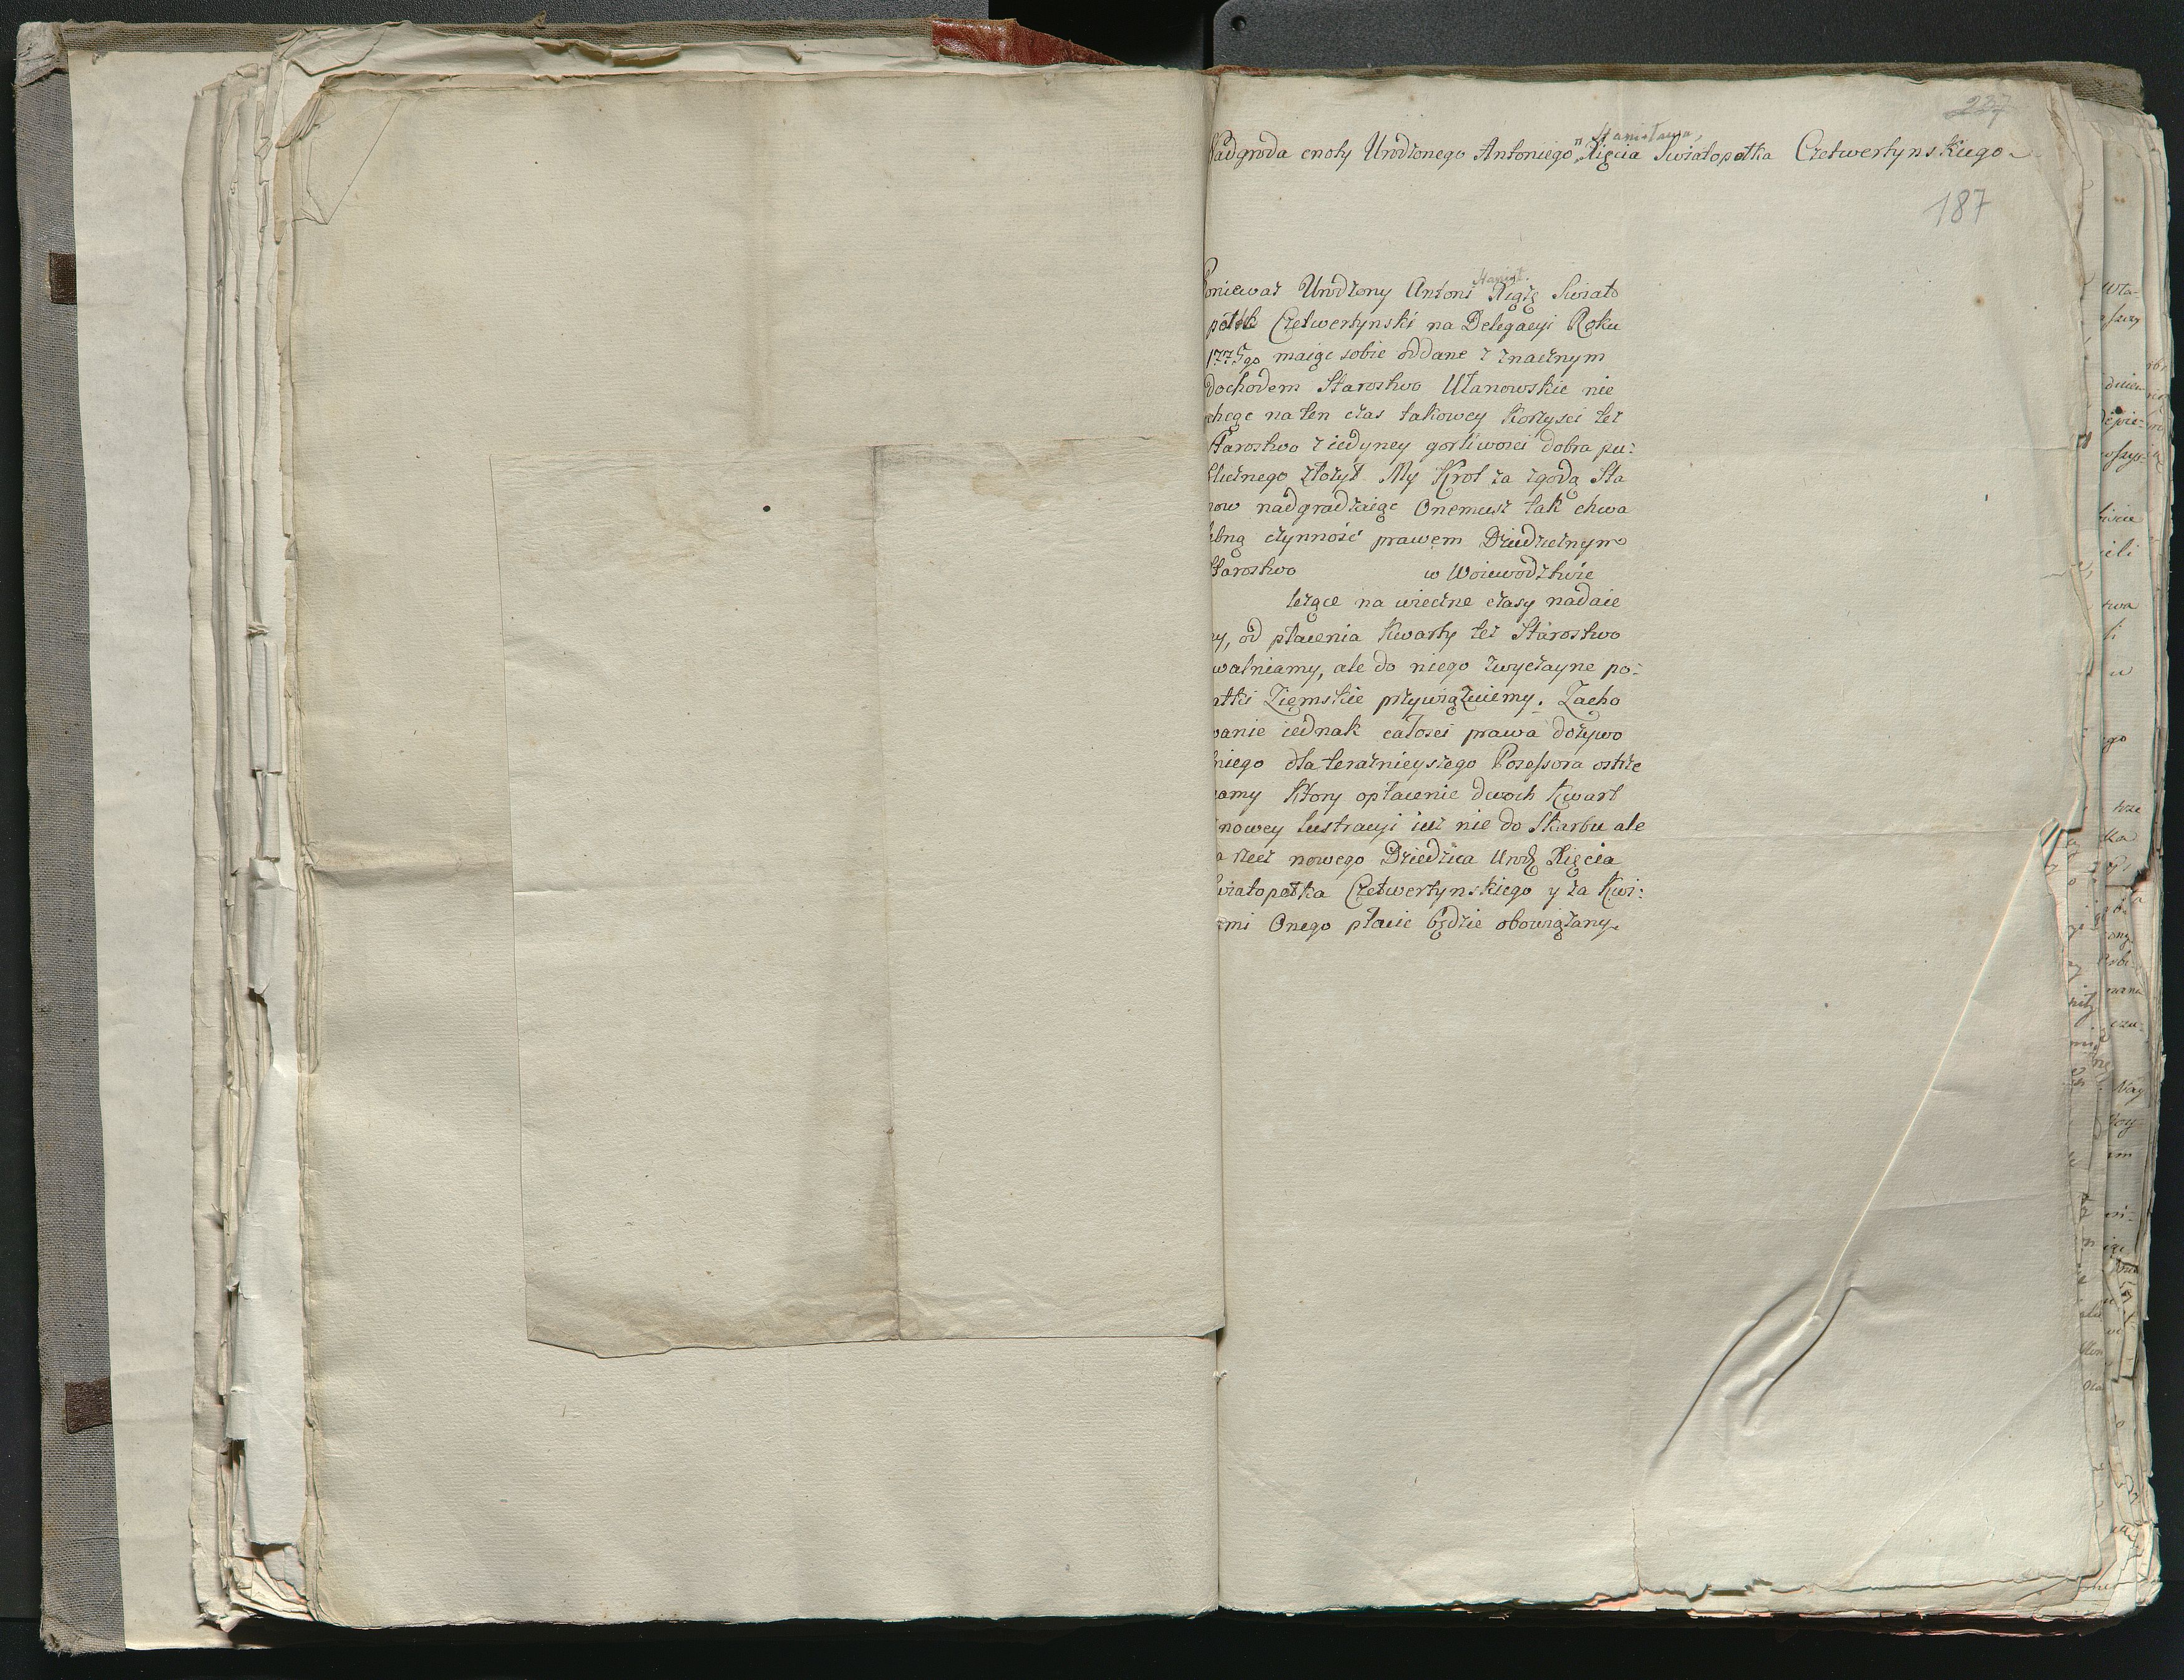 237
Stanisława,
Nadgroda cnoty Urodzonego Antoniego " Xięcia Swiatopełka Czetwertynskiego
187
Stanisł.
Poniewaz Urodzony Antoni Xiąze Swiato
pełk Czetwertynski na Delegacyi Roku
1775go maiąc sobie oddane z znacznym
dochodem Starostwo Ułanowskie nie
chcąc na ten czas takowey Korzysci tez
Starostwo z iedyney gorliwosci dobra pu:
blicznego złozył. My Krol za zgodą Sta
now nadgradzaiąc Onemusz tak chwa
lebną czynność prawem Dziedzicznym
Starostwo w Woiewodztwie
lezące na wieczne czasy nadaie
my, od płacenia Kwarty tez Starostwo
uwalniamy, ale do niego zwyczayne po:
datki Ziemskie przywiązuiemy. Zacho
wanie iednak całosci prawa dozywo
tniego dla teraznieyszego Possessora ostrze
gamy Ktory opłacenie dwoch Kwart
nowey lustracyi iuz nie do Skarbu ale
na rzecz nowego Dziedzica Urodz Xięcia
Swiatopełka Czetwertynskiego y za Kwi:
tami Onego płacic będzie obowiązany.